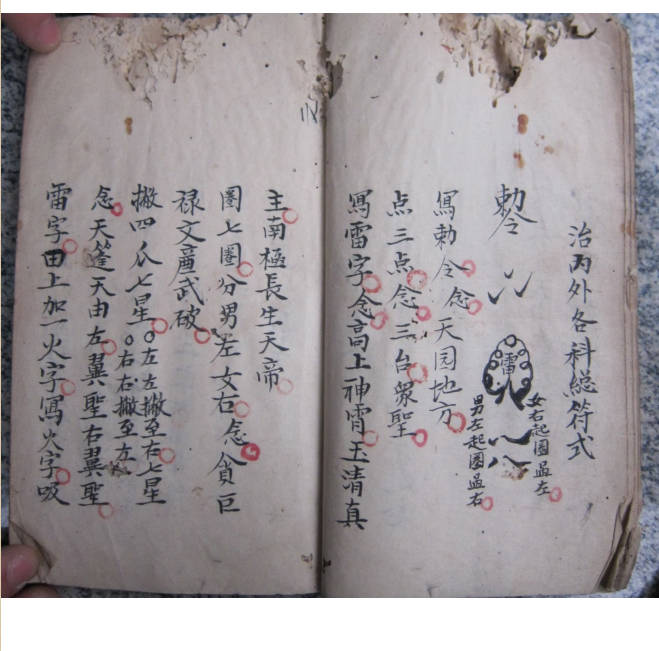 治内外各科總符式
勅令
雷
女右起圈孟左
男左起圈孟右
寫勅令念天园地方
点三点念三台眾聖
寫雷字念高上神霄玉清真
主南極長生天帝
圈七圈分男左女右念貪巨
禄文亷武破
撇四爪七星左左撇至右七星
右右撇至左
念天篷天由左翼聖右翼聖
雷字田上加一火字寫火字吸